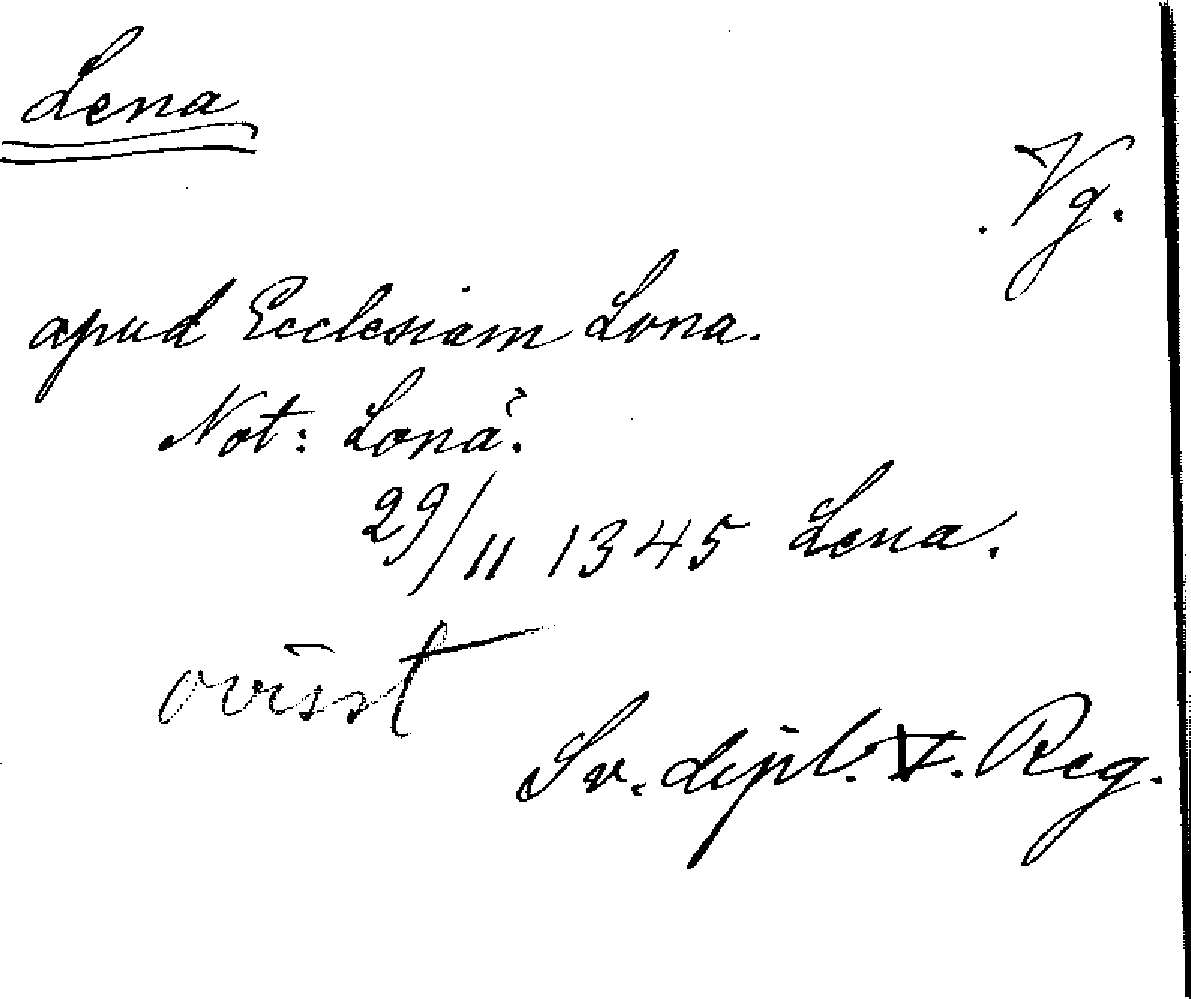 Lena
Vg.
apud Ecclesiam Lona.
Not: Lonä.
29/11 1345 Lena.
ovisst
Sv. dipl. V. Reg.